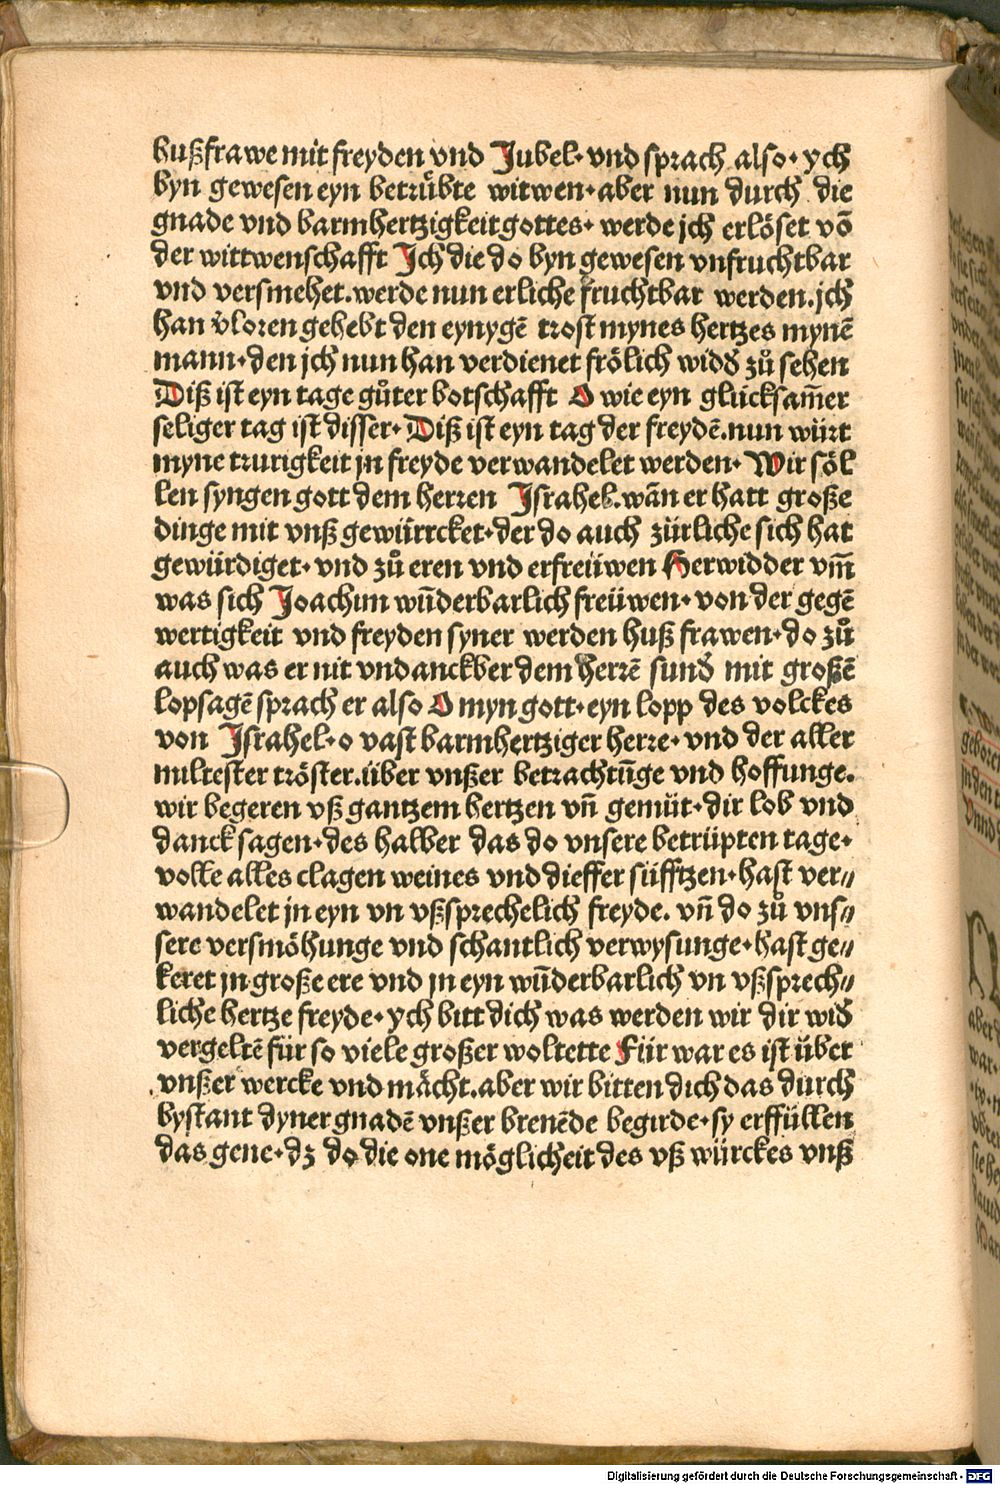 hußfrawe mit freyden vnd Jubel· vnd sprach also· ych
byn gewesen eyn betrůbte witwen· aber nun durch die
gnade vnd barmhertzigkeit gottes· werde jch erlöset võ
der wittwenschafft Jch die do byn gewesen vnfruchtbar
vnd versmehet. werde nun erliche fruchtbar werden. jch
han v̉loren gehebt den eynygẽ trost mynes hertzes mynẽ
mann· den jch nun han verdienet frölich widð zů sehen
Diß ist eyn tage gůter botschafft O wie eyn glücksam̃er
seliger tag ist disser· Diß ist eyn tag der freydẽ. nun würt
myne trurigkeit jn freyde verwandelet werden· Wir söl
len syngen gott dem herren Jsrahel. wãn er hatt große
dinge mit vnß gewürrcket· der do auch zürliche sich hat
gewürdiget· vnd zů eren vnd erfreüwen Herwidder vm̃
was sich Joachim wũderbarlich freüwen· von der gegẽ
wertigkeit vnd freyden syner werden huß frawen· do zů
auch was er nit vndanckber dem herrẽ sunð mit großẽ
lopsagẽ sprach er also O myn gott· eyn lopp des volckes
von Jsrahel· o vast barmhertziger herre· vnd der aller
miltester tröster. über vnßer betrachtũge vnd hoffunge.
wir begeren vß gantzem hertzen vñ gemüt· dir lob vnd
danck sagen· des halber das do vnsere betrüpten tage·
volle alles clagen weines vnd dieffer süfftzen· hast ver⸗
wandelet jn eyn vn vßsprechelich freyde. vñ do zů vns⸗
sere versmöhunge vnd schantlich verwysunge· hast ge⸗
keret jn große ere vnd jn eyn wũderbarlich vn vßsprech⸗
liche hertze freyde· ych bitt dich was werden wir dir wið
vergeltẽ für so viele großer woltette Für war es ist über
vnßer wercke vnd mächt. aber wir bitten dich das durch
bystant dyner gnadẽ vnßer brenẽde begirde· sy erffüllen
das gene· dz do die one möglicheit des vß würckes vnß
Digitalisierung gefördert durch die Deutsche Forschungsgemeinschaft - DFG